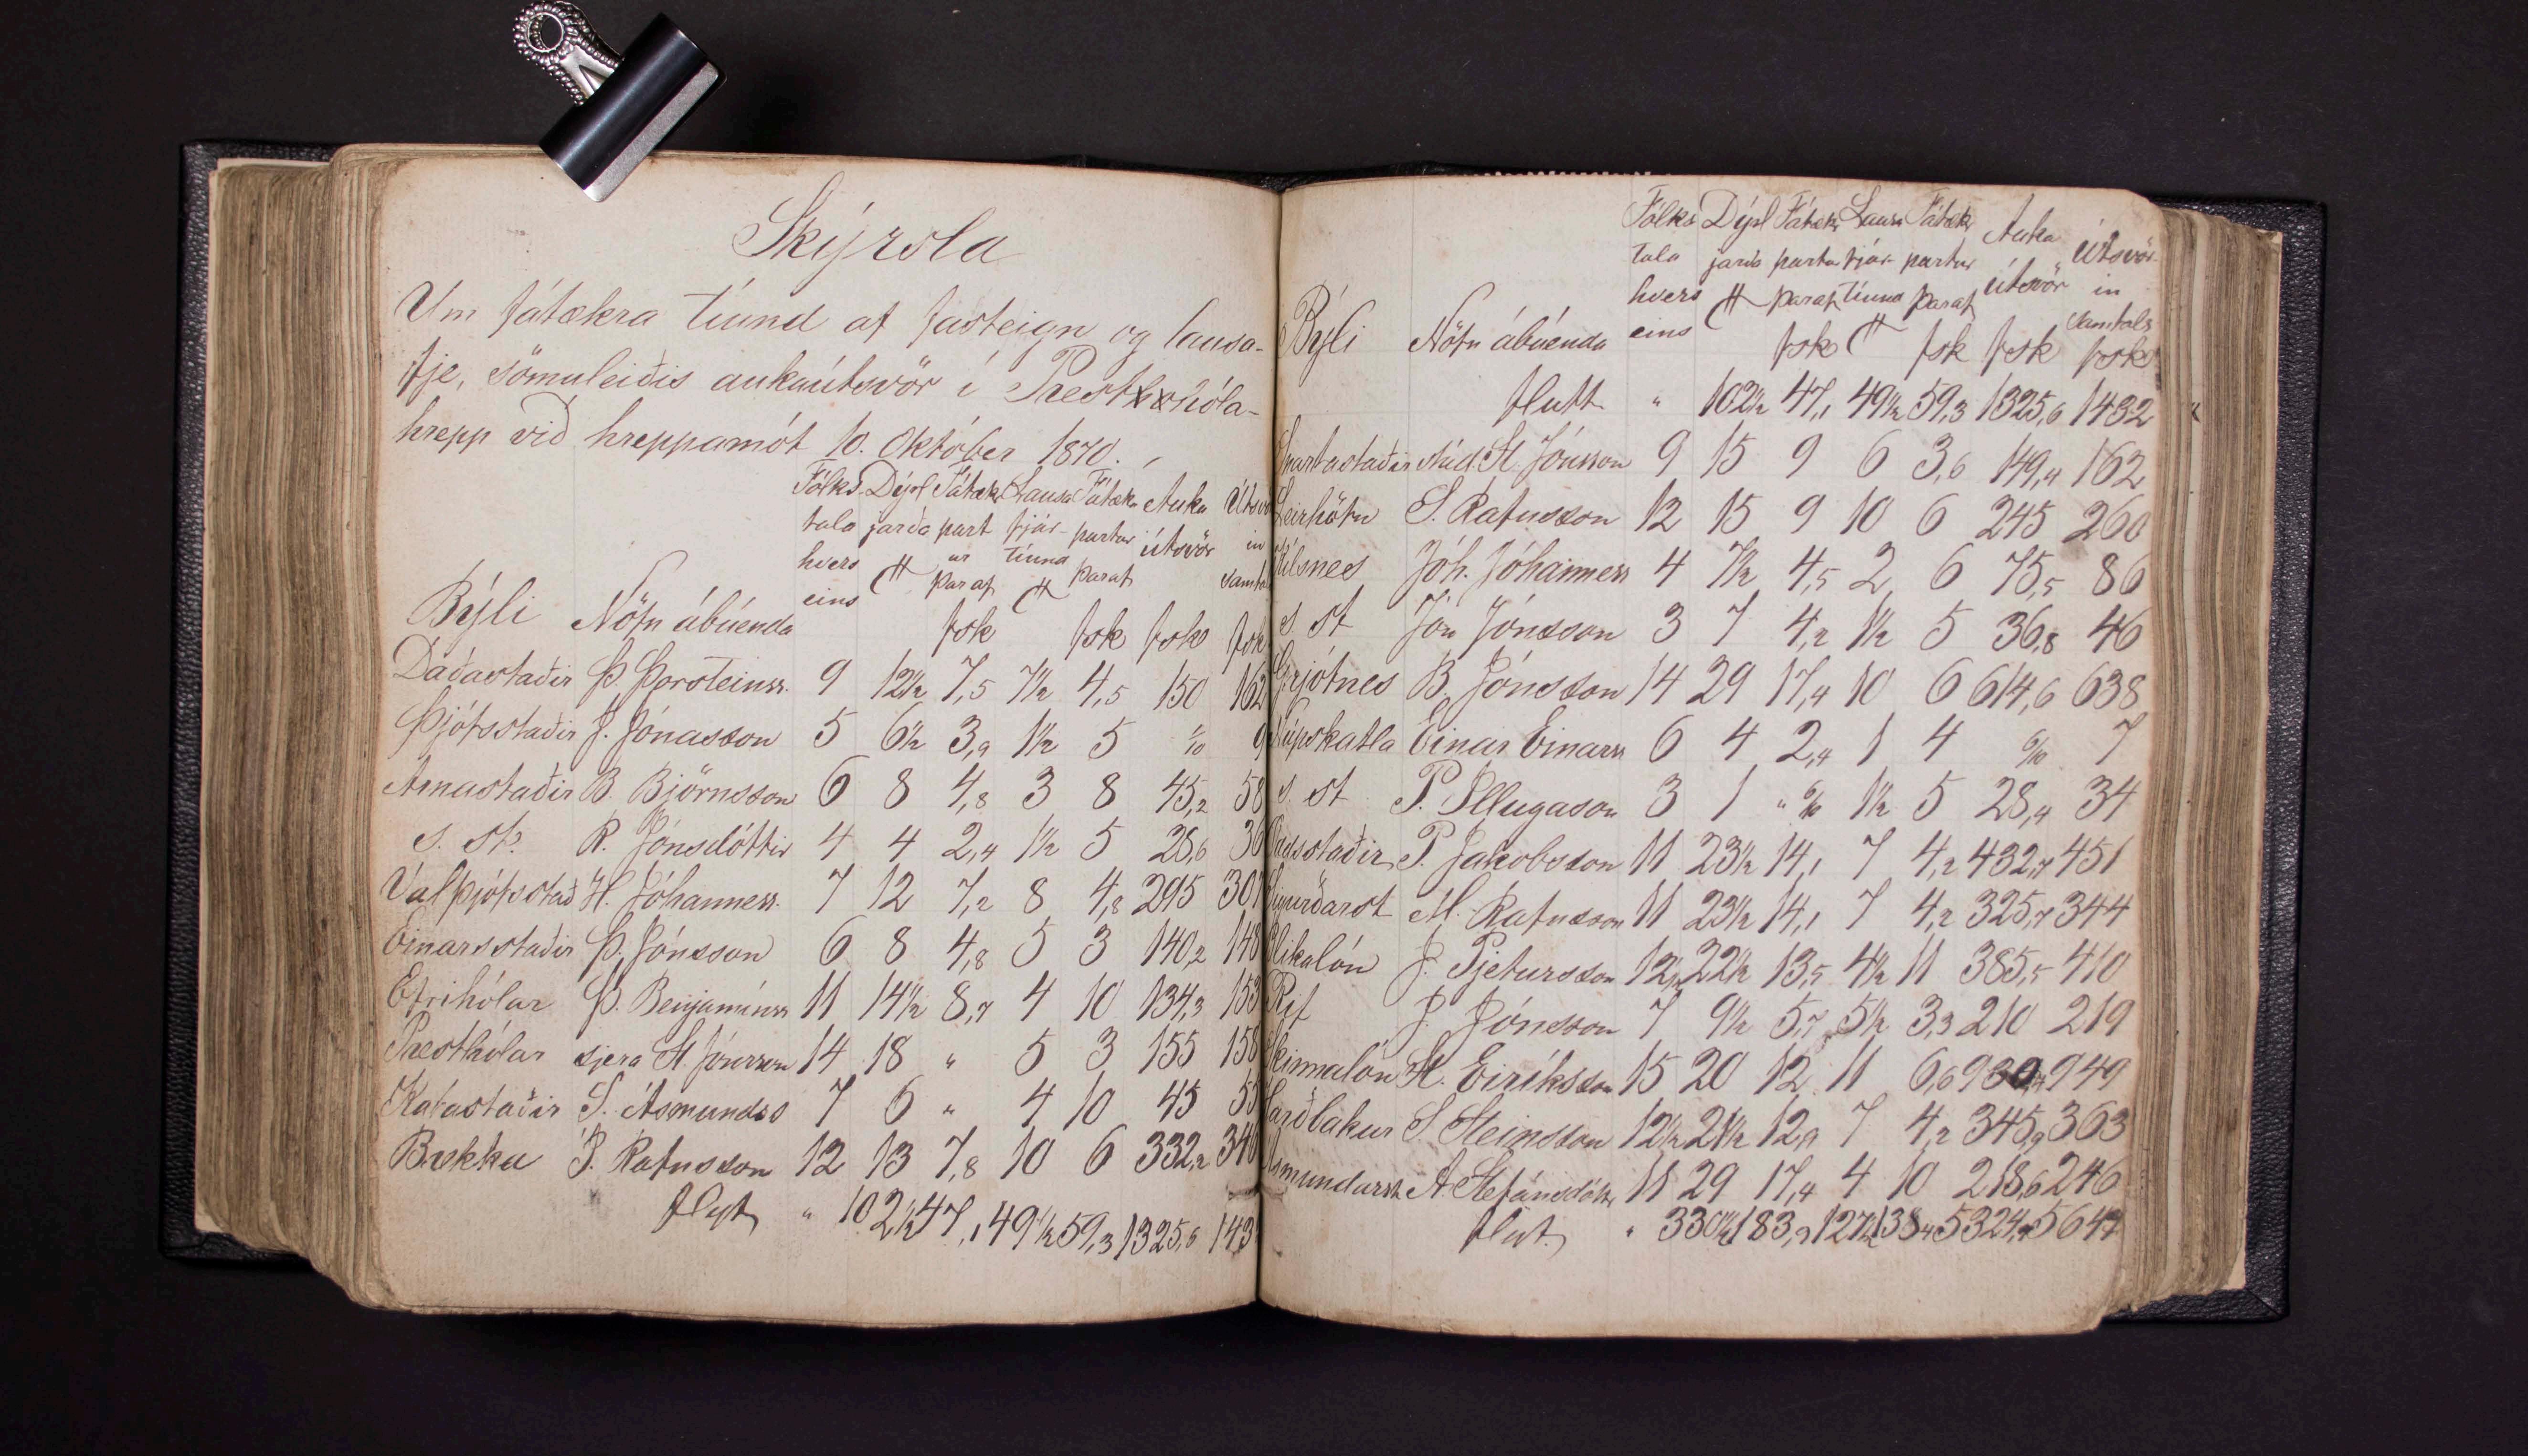 Skýrsla
Um fátækra tíund af fasteign og lausa-
fje, sömuleiðis aukaútsvör í Presthóla-
hrepp við hreppamót 10. Október 1870.
Fólks Dýrl Fátækr Lausa Fátækr Auka Útsvör
tala jarða part fjár- partur útsvör in
hvers ur tíund þaraf samtals
eins þaraf
Býli Nöfn ábúenda fsk fsk fsk fsk
Daðastaðir Þ. Þorsteinss. 9 12½ 7,5 7½ 4,5 150 162
Þjófsstaðir J. Jónasson 5 6½ 3,9 1½ 5 1/10 9
Arnastaðir B. Björnsson 6 8 4,8 3 8 45,2 58
s. st. R. Jónsdóttir 4 4 2,4 1½ 5 28,6 36
Valþjófsstað H. Jóhanness. 7 12 7,2 8 4,8 295 307
Einarsstaðir Þ. Jónsson 6 8 4,8 5 3 140,2 148
Efrihólar Þ. Benjamínss 11 14½ 8,7 4 10 134,3 153
Presthólar sjera St. Jónsson 14 18 " 5 3 155 158
Katastaðir S. Ásmundss 7 6 " 4 10 45 55
Brekka J. Rafnsson 12 13 7,8 10 6 332,2 346
flyt " 102½ 47,1 49½ 59,3 1325,6 143
Fólks Dýrl Fátækr Lausa Fátækr Auka Útsvör
tala jarða partur fjár- partur útsvör in
hvers þaraf tíund þaraf samtals
Býli Nöfn ábúenda eins fsk fsk fsk fsk
flutt " 102½ 47,1 49½ 59,3 1325,6 1432
Snartastaðir stúd. St Jónsson 9 15 9 6 3,6 149,4 162
Leirhöfn S. Rafnsson 12 15 9 10 6 245 260
Nílsnes Jóh. Jóhanness 4 7½ 4,5 2 6 75,5 86
s st Jón Jónsson 3 7 4,2 1½ 5 36,8 46
Grjótnes B. Jónsson 14 29 17,4 10 6 614,6 638
Núpskatla Einar Einarss 6 4 2,4 1 4 6/10 7
s. st P. Illugason 3 1 " 6/10 1½ 5 28,4 34
Oddsstaðir P. Jakobsson 11 23½ 14,1 7 4,2 432,7 451
Sigurðarst M. Rafnsson 11 23½ 14,1 7 4,2 325,7 344
Blikalón J. Pjetursson 12½ 22½ 13,5 4½ 11 385,5 410
Rif J. Jónsson 7 9½ 5,7 5½ 3,3 210 219
Skinnalón H. Eiríksson 15 20 12 11 6,6 930,4 949
Harðbakur S. Steinsson 12½ 21½ 12,9 7 4,2 345,9 363
Asmundarst A. Stefánsdótt 11 29 17,4 4 10 218,6 246
flyt " 330½ 183,9 127½ 138,4 5324,7 5647